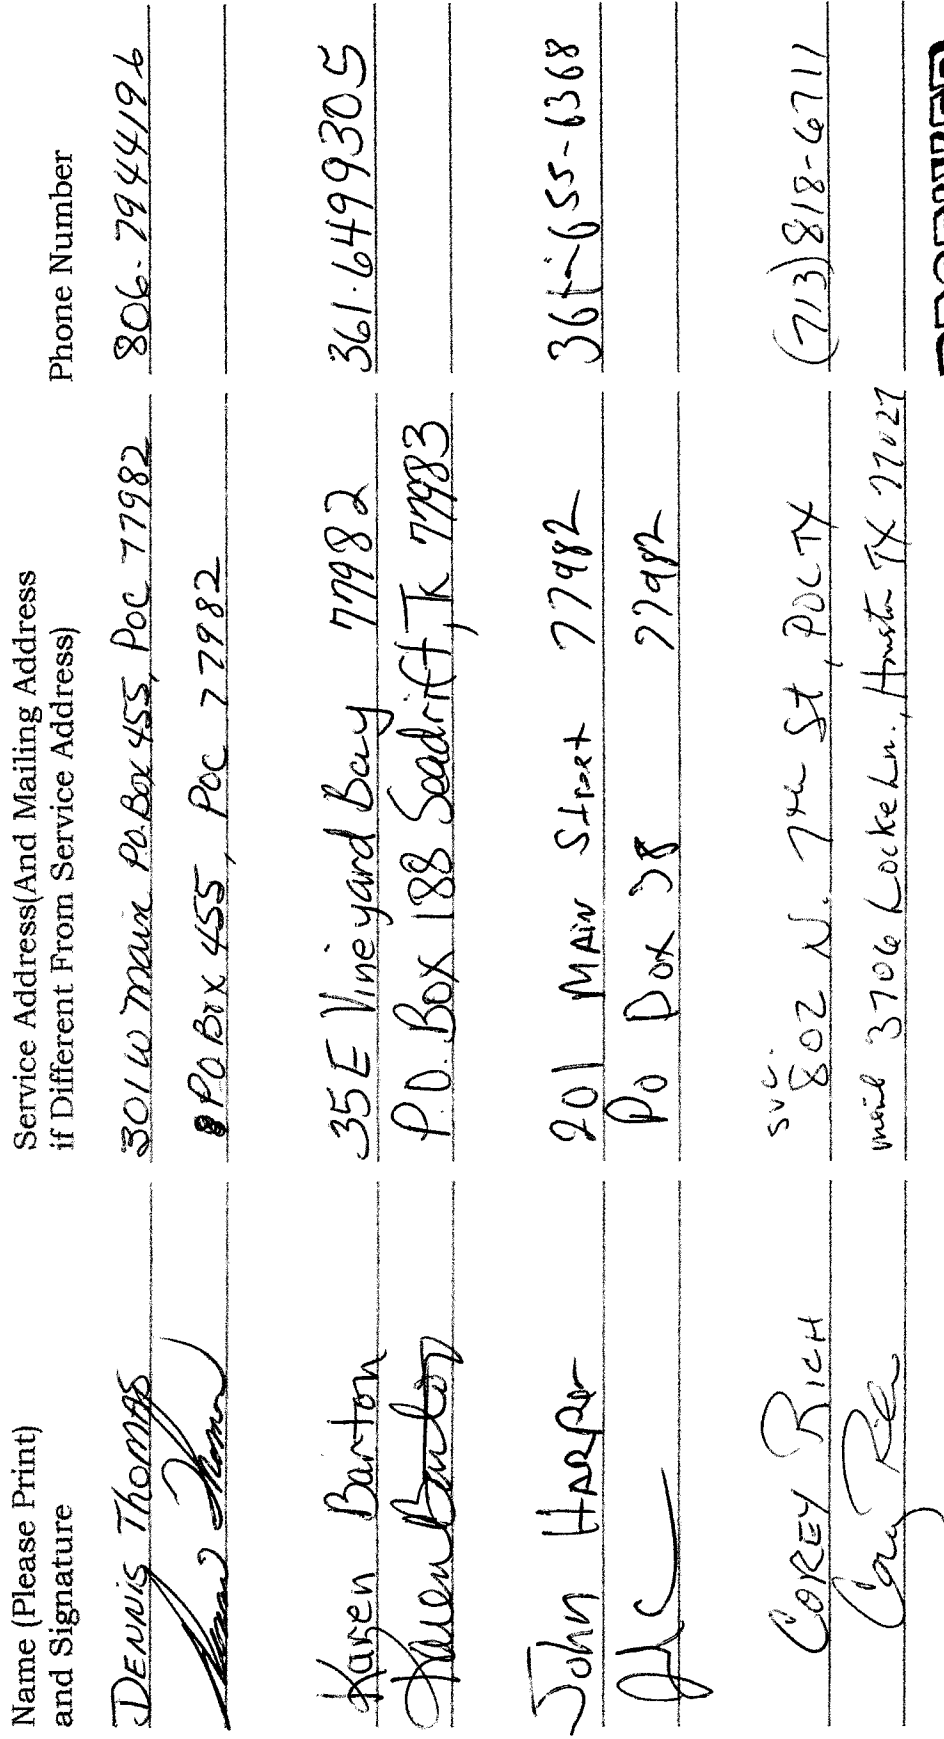 Name (Please Print)
and Signature
Service Address(And Mailing Address
if Different From Service Address)
Phone Number
DENNIS THOMAS
301 W Main P.O. Box 455, POC 77982
806-794 4196
Dennis Thomas
PO Box 455, POC 77982
Karen Barton
35 E Vineyard Bay 77982
361.6499305
Karen Barton
P.O. Box 188 Seadrift, Tx 77983
John HARper
201 MAiN Street 77982
361-655-6368
PO Box 38 77982
COREY RICH
svc. 802 N. 7th St, POC TX
(713) 818-6711
Corey Rich
mail 3706 Locke Ln., Houston TX 77027